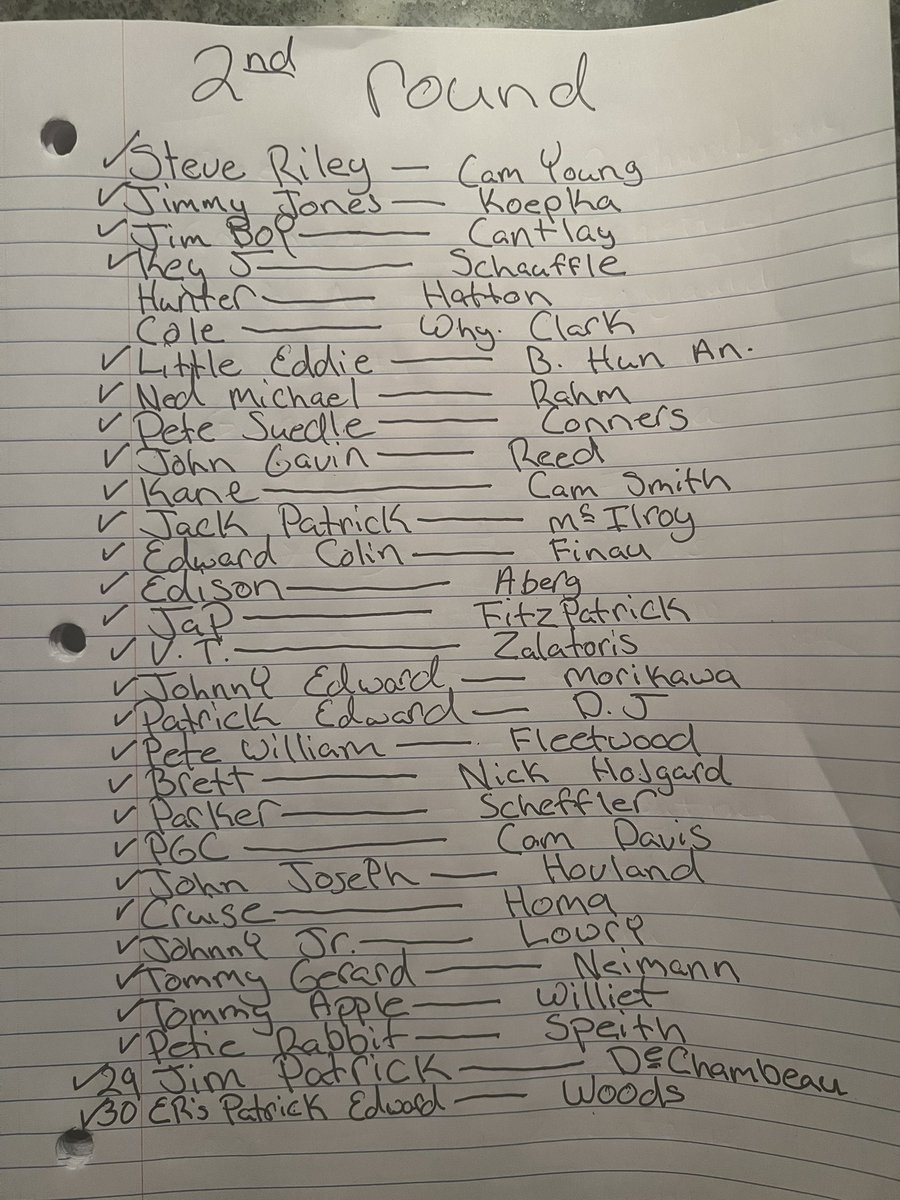 2nd round
✓ Steve Riley — Cam Young
✓ Jimmy Jones — Koepka
✓ Jim Boy — Cantlay
✓ Key J — Schauffle
Hunter — Hatton
Cole — Why. Clark
✓ Little Eddie — B. Hun An.
✓ Ned Michael — Rahm
✓ Pete Suedle — Conners
✓ John Gavin — Reed
✓ Kane — Cam Smith
✓ Jack Patrick — McIlroy
✓ Edward Colin — Finau
✓ Edison — Aberg
✓ Jap — FitzPatrick
✓ V.T. — Zalatoris
✓ Johnny Edward — Morikawa
✓ Patrick Edward — D.J
✓ Pete William — Fleetwood
✓ Brett — Nick Hojgard
✓ Parker — Scheffler
✓ PGC — Cam Davis
✓ John Joseph — Hovland
✓ Cruise — Homa
✓ Johnny Jr. — Lowry
✓ Tommy Gerard — Neimann
✓ Tommy Apple — Williet
✓ Petie Rabbit — Speith
✓ 29 Jim Patrick — DeChambeau
✓ 30 ER's Patrick Edward — Woods